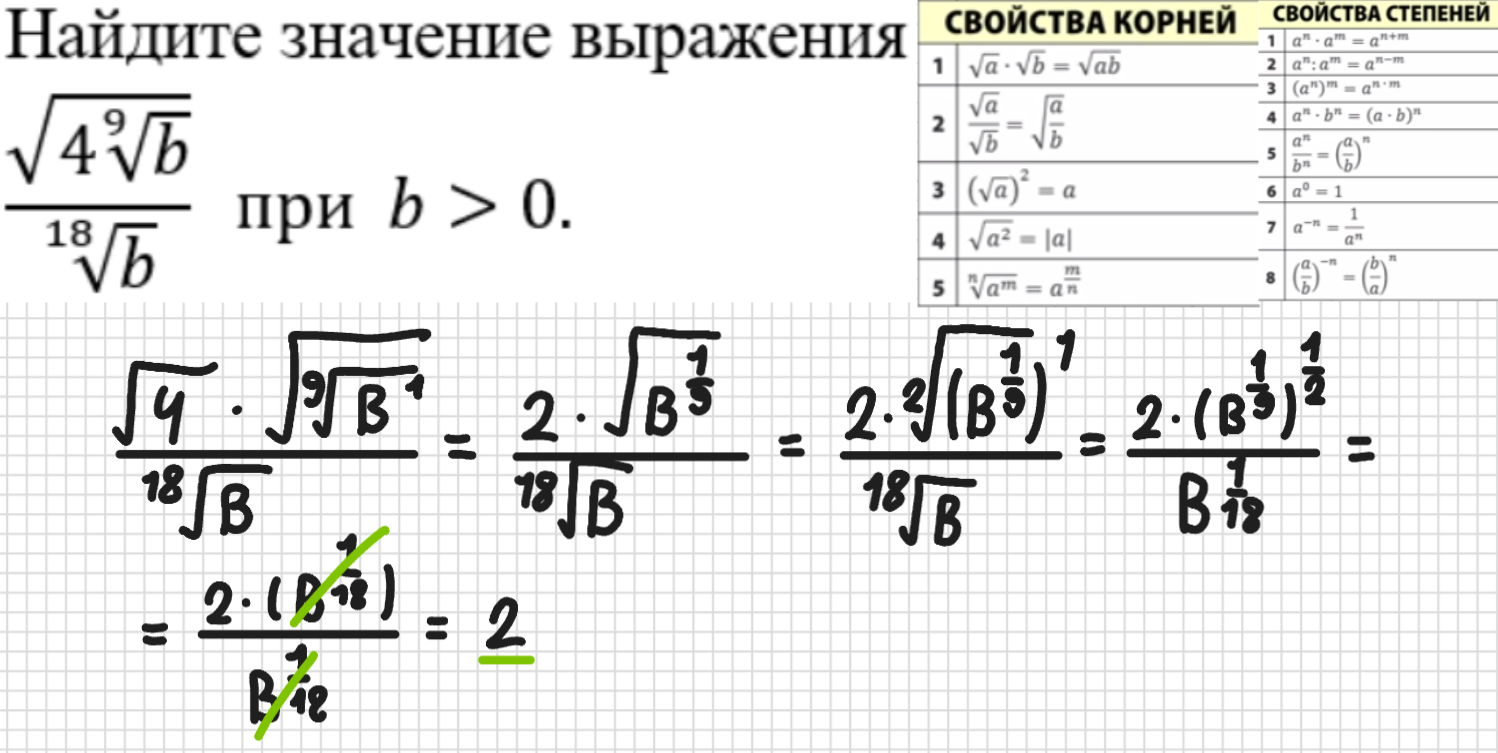 Найдите значение выражения
√(4 ⁹√b) / ¹⁸√b при b > 0.
СВОЙСТВА КОРНЕЙ
1 √a · √b = √ab
2 √a / √b = √(a/b)
3 (√a)² = a
4 √a² = |a|
5 ⁿ√aᵐ = a^(m/n)
СВОЙСТВА СТЕПЕНЕЙ
1 aⁿ · aᵐ = aⁿ⁺ᵐ
2 aⁿ : aᵐ = aⁿ⁻ᵐ
3 (aⁿ)ᵐ = aⁿ·ᵐ
4 aⁿ · bⁿ = (a · b)ⁿ
5 aⁿ / bⁿ = (a/b)ⁿ
6 a⁰ = 1
7 a⁻ⁿ = 1/aⁿ
8 (a/b)⁻ⁿ = (b/a)ⁿ
√4 · √(⁹√B¹) / ¹⁸√B = 2 · √(B^(1/9)) / ¹⁸√B = 2 · ²√(B^(1/9))¹ / ¹⁸√B = 2 · (B^(1/9))^(1/2) / B^(1/18) =
= 2 · (B^(1/18)) / B^(1/18) = 2